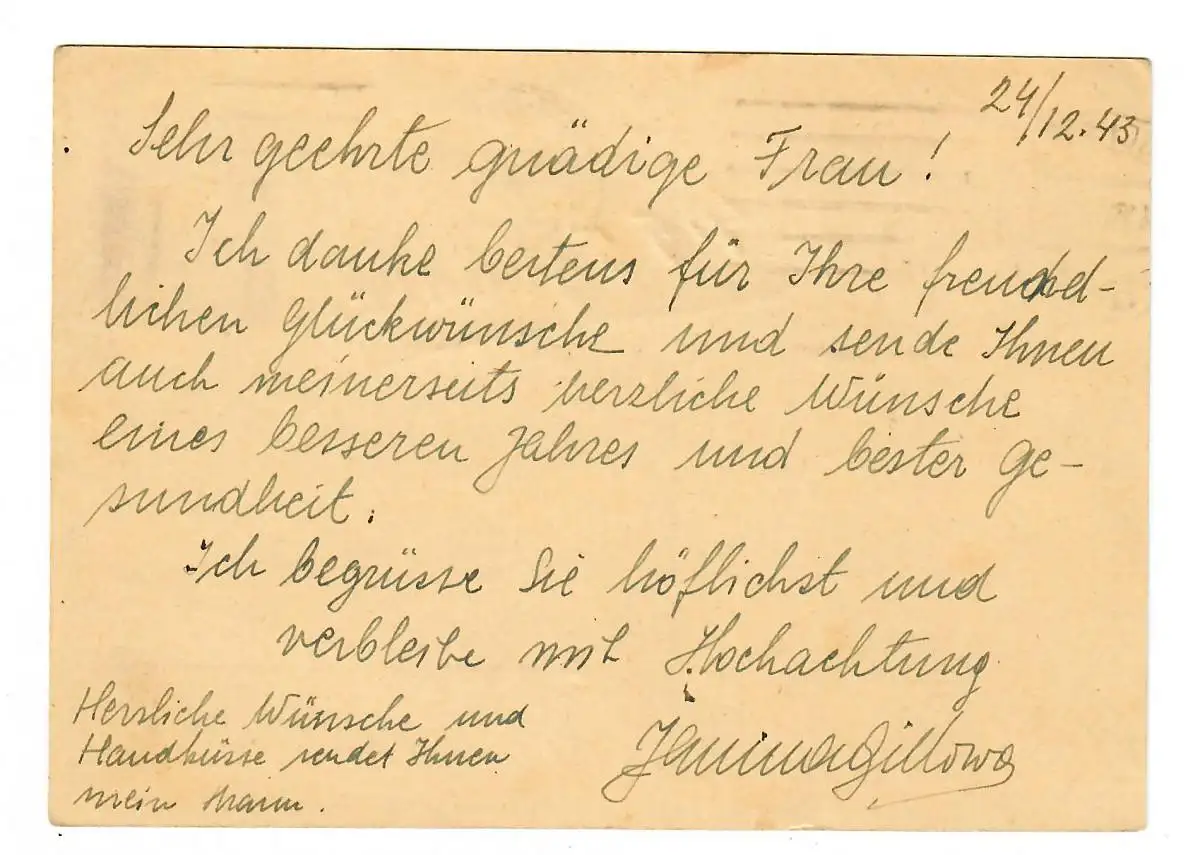 24/12.43
Sehr geehrte gnädige Frau!
Ich danke bestens für Ihre freund-
lichen Glückwünsche und sende Ihnen
auch meinerseits herzliche Wünsche
eines besseren Jahres und bester Ge-
sundheit.
Ich begrüsse Sie höflichst und
verbleibe mit Hochachtung
Janina Gillowa
Herzliche Wünsche und
Handküsse sendet Ihnen
mein Mann.